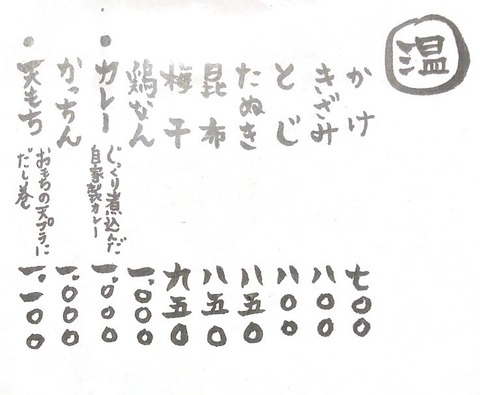 温
かけ 七〇〇
きざみ 八〇〇
とじ 八〇〇
たぬき 八五〇
昆布 八五〇
梅干 九五〇
鶏なん 一、〇〇〇
・カレー じっくり煮込んだ 自家製カレー 一、〇〇〇
かっちん 一、〇〇〇
・天もち おもちの天プラに だし巻 一、一〇〇